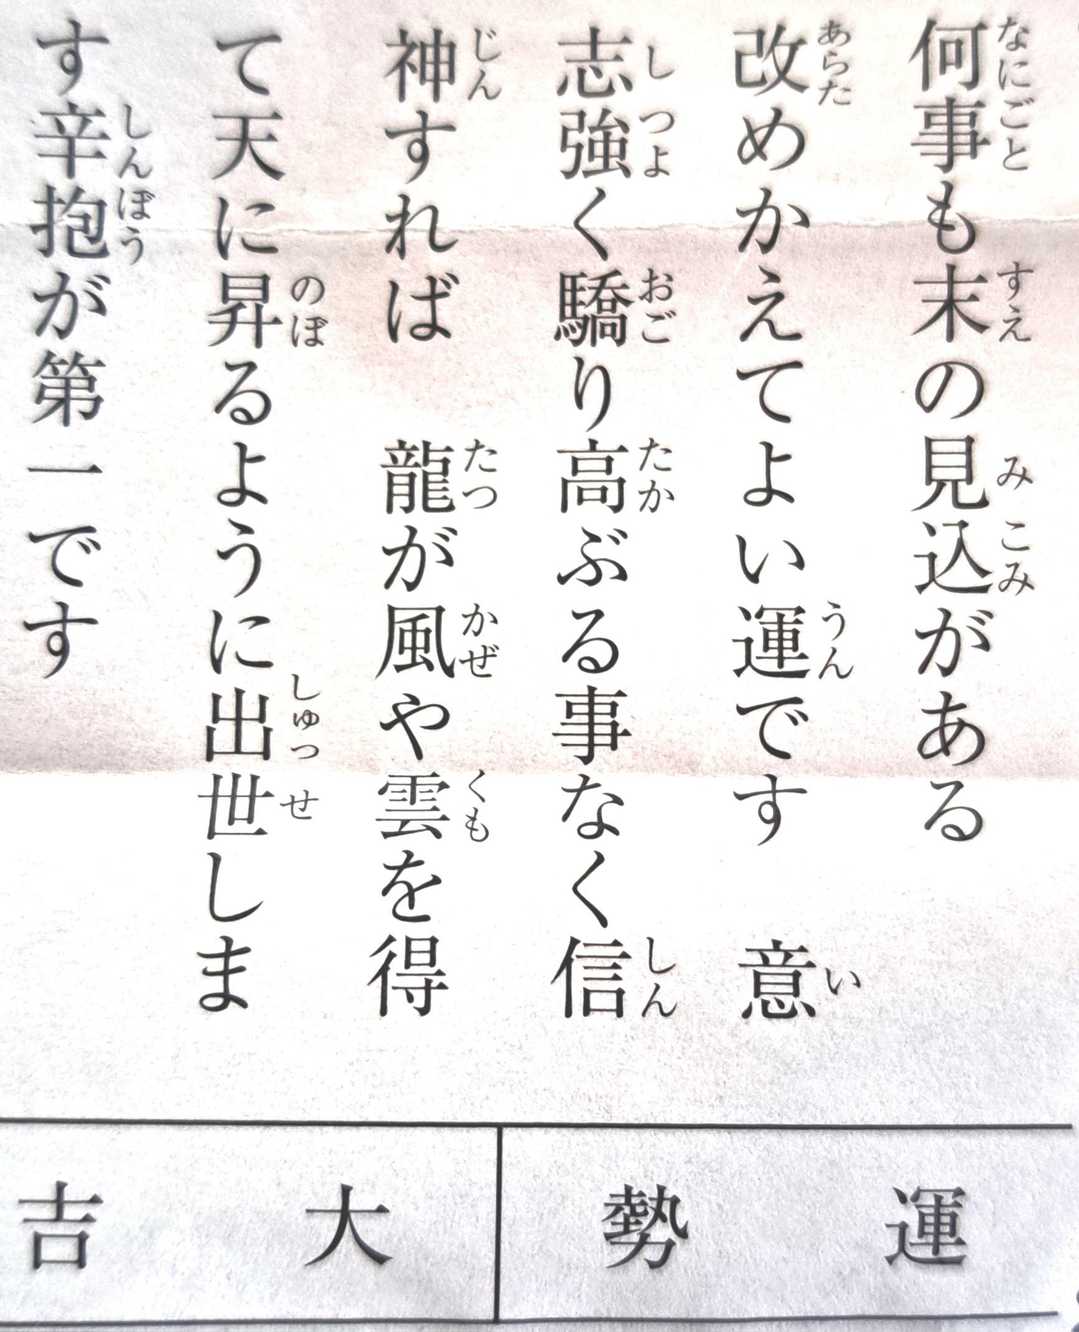 何事も末の見込がある
改めかえてよい運です　意
志強く驕り高ぶる事なく信
神すれば　龍が風や雲を得
て天に昇るように出世しま
す辛抱が第一です
運勢
大吉